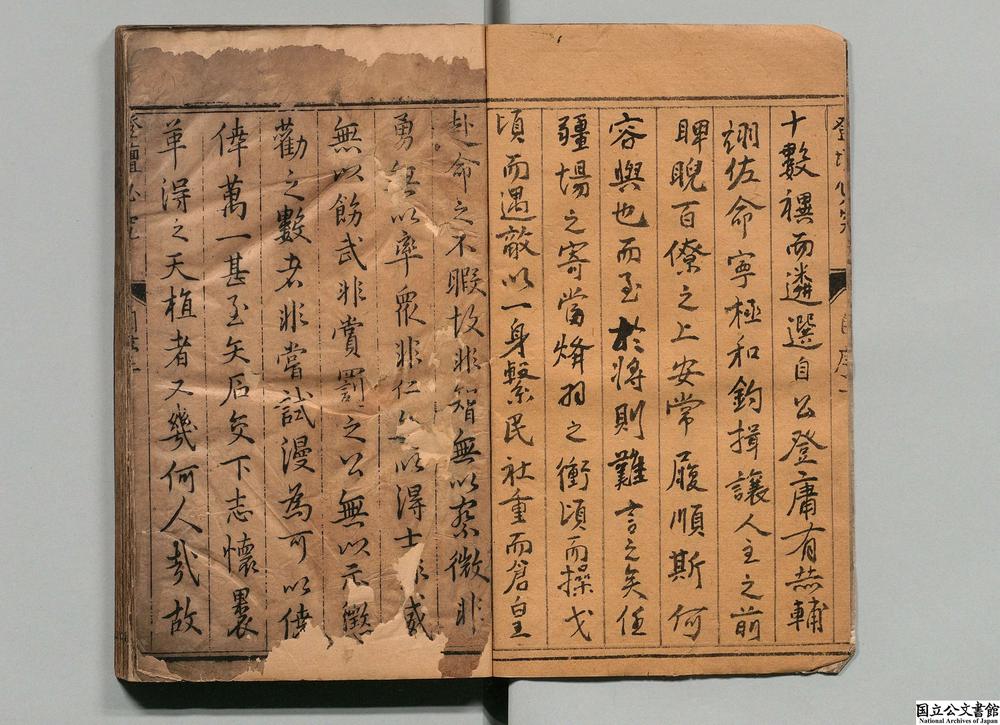 十數襈而遴選自公登庸有恭輔
翊佐命寧極和鈞揖讓人主之前
睥睨百僚之上安常履順斯何
容與也而至於將則難言之矣任
疆場之寄當烽羽之衝頃而操戈
頃而遇敵以一身繫民社重而倉皇
赴命之不暇故非智無以察微非
勇無以率衆非仁無以得士非威
無以飭武非賞罰之公無以示懲
勸之數者非嘗試漫為可以倖
倖萬一甚至矢石交下志懷裹
革得之天植者又幾何人哉故
登壇必究
国立公文書館
National Archives of Japan